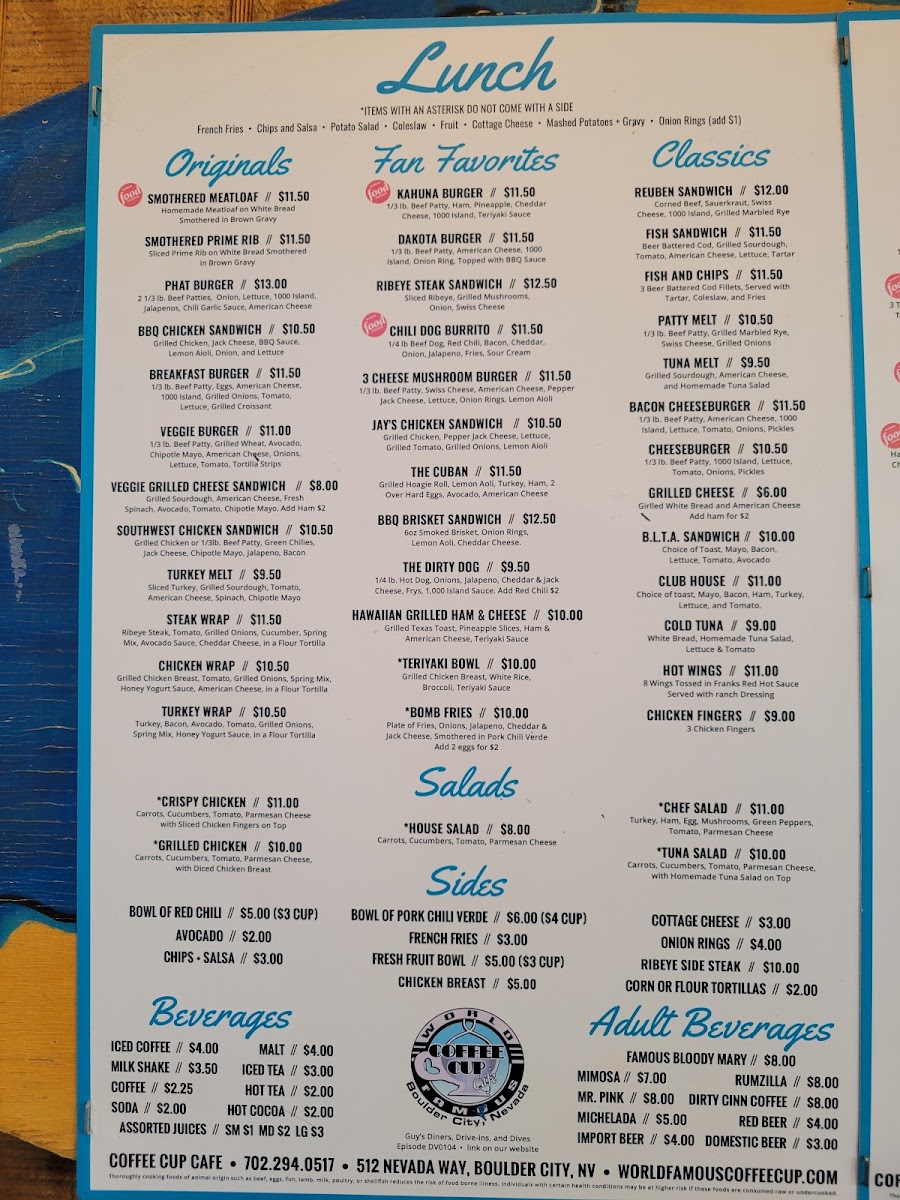 Lunch
*ITEMS WITH AN ASTERISK DO NOT COME WITH A SIDE
French Fries • Chips and Salsa • Potato Salad • Coleslaw • Fruit • Cottage Cheese • Mashed Potatoes + Gravy • Onion Rings (add $1)
Originals
food
SMOTHERED MEATLOAF // $11.50
Homemade Meatloaf on White Bread
Smothered in Brown Gravy
SMOTHERED PRIME RIB // $11.50
Sliced Prime Rib on White Bread Smothered
in Brown Gravy
PHAT BURGER // $13.00
2 1/3 lb. Beef Patties, Onion, Lettuce, 1000 Island,
Jalapenos, Chili Garlic Sauce, American Cheese
BBQ CHICKEN SANDWICH // $10.50
Grilled Chicken, Jack Cheese, BBQ Sauce,
Lemon Aioli, Onion, and Lettuce
BREAKFAST BURGER // $11.50
1/3 lb. Beef Patty, Eggs, American Cheese,
1000 Island, Grilled Onions, Tomato,
Lettuce, Grilled Croissant
VEGGIE BURGER // $11.00
1/3 lb. Beef Patty, Grilled Wheat, Avocado,
Chipotle Mayo, American Cheese, Onions,
Lettuce, Tomato, Tortilla Strips
VEGGIE GRILLED CHEESE SANDWICH // $8.00
Grilled Sourdough, American Cheese, Fresh
Spinach, Avocado, Tomato, Chipotle Mayo. Add Ham $2
SOUTHWEST CHICKEN SANDWICH // $10.50
Grilled Chicken or 1/3lb. Beef Patty, Green Chilies,
Jack Cheese, Chipotle Mayo, Jalapeno, Bacon
TURKEY MELT // $9.50
Sliced Turkey, Grilled Sourdough, Tomato,
American Cheese, Spinach, Chipotle Mayo
STEAK WRAP // $11.50
Ribeye Steak, Tomato, Grilled Onions, Cucumber, Spring
Mix, Avocado Sauce, Cheddar Cheese, in a Flour Tortilla
CHICKEN WRAP // $10.50
Grilled Chicken Breast, Tomato, Grilled Onions, Spring Mix,
Honey Yogurt Sauce, American Cheese, in a Flour Tortilla
TURKEY WRAP // $10.50
Turkey, Bacon, Avocado, Tomato, Grilled Onions,
Spring Mix, Honey Yogurt Sauce, in a Flour Tortilla
Fan Favorites
food
KAHUNA BURGER // $11.50
1/3 lb. Beef Patty, Ham, Pineapple, Cheddar
Cheese, 1000 Island, Teriyaki Sauce
DAKOTA BURGER // $11.50
1/3 lb. Beef Patty, American Cheese, 1000
Island, Onion Ring, Topped with BBQ Sauce
RIBEYE STEAK SANDWICH // $12.50
Sliced Ribeye, Grilled Mushrooms,
Onion, Swiss Cheese
food
CHILI DOG BURRITO // $11.50
1/4 lb Beef Dog, Red Chili, Bacon, Cheddar,
Onion, Jalapeno, Fries, Sour Cream
3 CHEESE MUSHROOM BURGER // $11.50
1/3 lb. Beef Patty, Swiss Cheese, American Cheese, Pepper
Jack Cheese, Lettuce, Onion Rings, Lemon Aioli
JAY'S CHICKEN SANDWICH // $10.50
Grilled Chicken, Pepper Jack Cheese, Lettuce,
Grilled Tomato, Grilled Onions, Lemon Aioli
THE CUBAN // $11.50
Grilled Hoagie Roll, Lemon Aoli, Turkey, Ham, 2
Over Hard Eggs, Avocado, American Cheese
BBQ BRISKET SANDWICH // $12.50
6oz Smoked Brisket, Onion Rings,
Lemon Aoli, Cheddar Cheese.
THE DIRTY DOG // $9.50
1/4 lb. Hot Dog, Onions, Jalapeno, Cheddar & Jack
Cheese, Frys, 1,000 Island Sauce. Add Red Chili $2
HAWAIIAN GRILLED HAM & CHEESE // $10.00
Grilled Texas Toast, Pineapple Slices, Ham &
American Cheese, Teriyaki Sauce
*TERIYAKI BOWL // $10.00
Grilled Chicken Breast, White Rice,
Broccoli, Teriyaki Sauce
*BOMB FRIES // $10.00
Plate of Fries, Onions, Jalapeno, Cheddar &
Jack Cheese, Smothered in Pork Chili Verde
Add 2 eggs for $2
Classics
REUBEN SANDWICH // $12.00
Corned Beef, Sauerkraut, Swiss
Cheese, 1000 Island, Grilled Marbled Rye
FISH SANDWICH // $11.50
Beer Battered Cod, Grilled Sourdough,
Tomato, American Cheese, Lettuce, Tartar
FISH AND CHIPS // $11.50
3 Beer Battered Cod Fillets, Served with
Tartar, Coleslaw, and Fries
PATTY MELT // $10.50
1/3 lb. Beef Patty, Grilled Marbled Rye,
Swiss Cheese, Grilled Onions
TUNA MELT // $9.50
Grilled Sourdough, American Cheese,
and Homemade Tuna Salad
BACON CHEESEBURGER // $11.50
1/3 lb. Beef Patty, American Cheese, 1000
Island, Lettuce, Tomato, Onions, Pickles
CHEESEBURGER // $10.50
1/3 lb. Beef Patty, 1000 Island, Lettuce,
Tomato, Onions, Pickles
GRILLED CHEESE // $6.00
Girlled White Bread and American Cheese
Add ham for $2
B.L.T.A. SANDWICH // $10.00
Choice of Toast, Mayo, Bacon,
Lettuce, Tomato, Avocado
CLUB HOUSE // $11.00
Choice of toast, Mayo, Bacon, Ham, Turkey,
Lettuce, and Tomato.
COLD TUNA // $9.00
White Bread, Homemade Tuna Salad,
Lettuce & Tomato
HOT WINGS // $11.00
8 Wings Tossed in Franks Red Hot Sauce
Served with ranch Dressing
CHICKEN FINGERS // $9.00
3 Chicken Fingers
Salads
*CRISPY CHICKEN // $11.00
Carrots, Cucumbers, Tomato, Parmesan Cheese
with Sliced Chicken Fingers on Top
*GRILLED CHICKEN // $10.00
Carrots, Cucumbers, Tomato, Parmesan Cheese,
with Diced Chicken Breast
*HOUSE SALAD // $8.00
Carrots, Cucumbers, Tomato, Parmesan Cheese
*CHEF SALAD // $11.00
Turkey, Ham, Egg, Mushrooms, Green Peppers,
Tomato, Parmesan Cheese
*TUNA SALAD // $10.00
Carrots, Cucumbers, Tomato, Parmesan Cheese,
with Homemade Tuna Salad on Top
Sides
BOWL OF RED CHILI // $5.00 ($3 CUP)
AVOCADO // $2.00
CHIPS + SALSA // $3.00
BOWL OF PORK CHILI VERDE // $6.00 ($4 CUP)
FRENCH FRIES // $3.00
FRESH FRUIT BOWL // $5.00 ($3 CUP)
CHICKEN BREAST // $5.00
COTTAGE CHEESE // $3.00
ONION RINGS // $4.00
RIBEYE SIDE STEAK // $10.00
CORN OR FLOUR TORTILLAS // $2.00
Beverages
ICED COFFEE // $4.00 MALT // $4.00
MILK SHAKE // $3.50 ICED TEA // $3.00
COFFEE // $2.25 HOT TEA // $2.00
SODA // $2.00 HOT COCOA // $2.00
ASSORTED JUICES // SM $1 MD $2 LG $3
WORLD
COFFEE
CUP
Cafe
FAMOUS
Boulder City, Nevada
Guy's Diners, Drive-ins, and Dives
Episode DV0104 • link on our website
Adult Beverages
FAMOUS BLOODY MARY // $8.00
MIMOSA // $7.00 RUMZILLA // $8.00
MR. PINK // $8.00 DIRTY CINN COFFEE // $8.00
MICHELADA // $5.00 RED BEER // $4.00
IMPORT BEER // $4.00 DOMESTIC BEER // $3.00
COFFEE CUP CAFE • 702.294.0517 • 512 NEVADA WAY, BOULDER CITY, NV • WORLDFAMOUSCOFFEECUP.COM
Thoroughly cooking foods of animal origin such as beef, eggs, fish, lamb, milk, poultry, or shellfish reduces the risk of food borne illness. Individuals with certain health conditions may be at higher risk if these foods are consumed raw or undercooked.